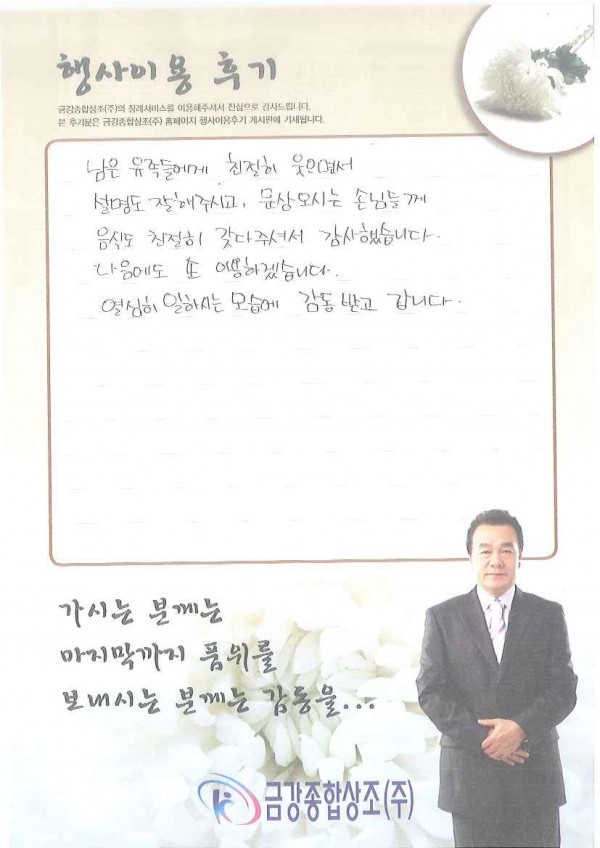 행사이용 후기
금강종합상조(주)의 장례서비스를 이용해주셔서 진심으로 감사드립니다.
본 후기분은 금강종합상조(주) 홈페이지 행사이용후기 게시판에 기재됩니다.
남은 유족들에게 친절히 웃으면서
설명도 잘해주시고, 문상오시는 손님들께
음식도 친절히 갖다주셔서 감사했습니다.
다음에도 또 이용하겠습니다.
열심히 일하시는 모습에 감동받고 갑니다.
가시는 분께는
마지막까지 품위를
보내시는 분께는 감동을...
금강종합상조(주)